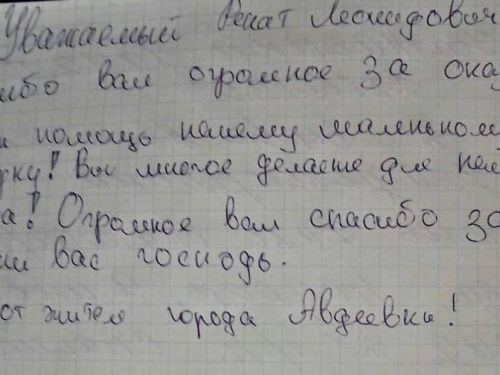 Уважаемый Ренат Леонидович
ибо вам огромное за ока
помощь нашему маленьком
ку! Вы многое делаете для на
а! Огромное вам спасибо за
ни вас господь.
от жителя города Авдеевки!